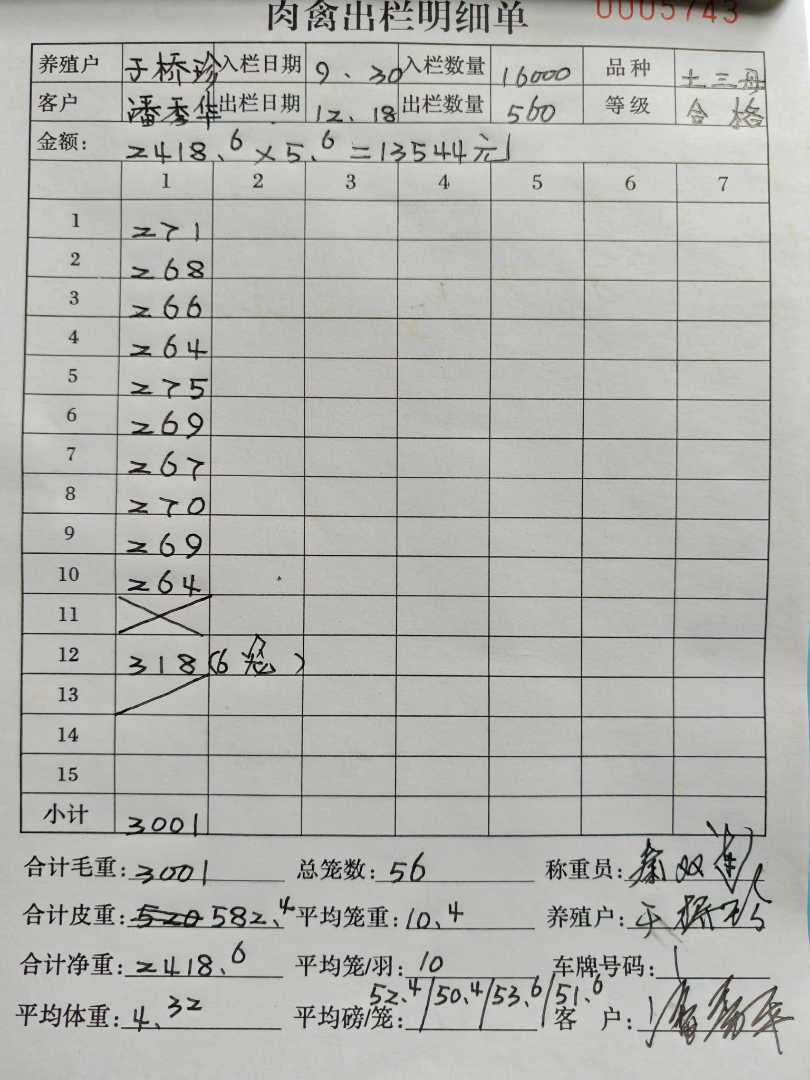 肉禽出栏明细单 0005743
养殖户 于桥珍 入栏日期 9、30 入栏数量 16000 品种 土三丹
客户 潘秀华 出栏日期 12、18 出栏数量 560 等级 合格
金额: 2418.6×5.6=13544元
1 2 3 4 5 6 7
1 271
2 268
3 266
4 264
5 275
6 269
7 267
8 270
9 269
10 264
11
12 318(6笼)
13
14
15
小计 3001
合计毛重: 3001 总笼数: 56 称重员:
合计皮重: 520 582.4 平均笼重: 10.4 养殖户: 于桥珍
合计净重: 2418.6 平均笼/羽: 10 车牌号码:
平均体重: 4.32 平均磅/笼: 52.4/50.4/53.6/51.6 客 户: